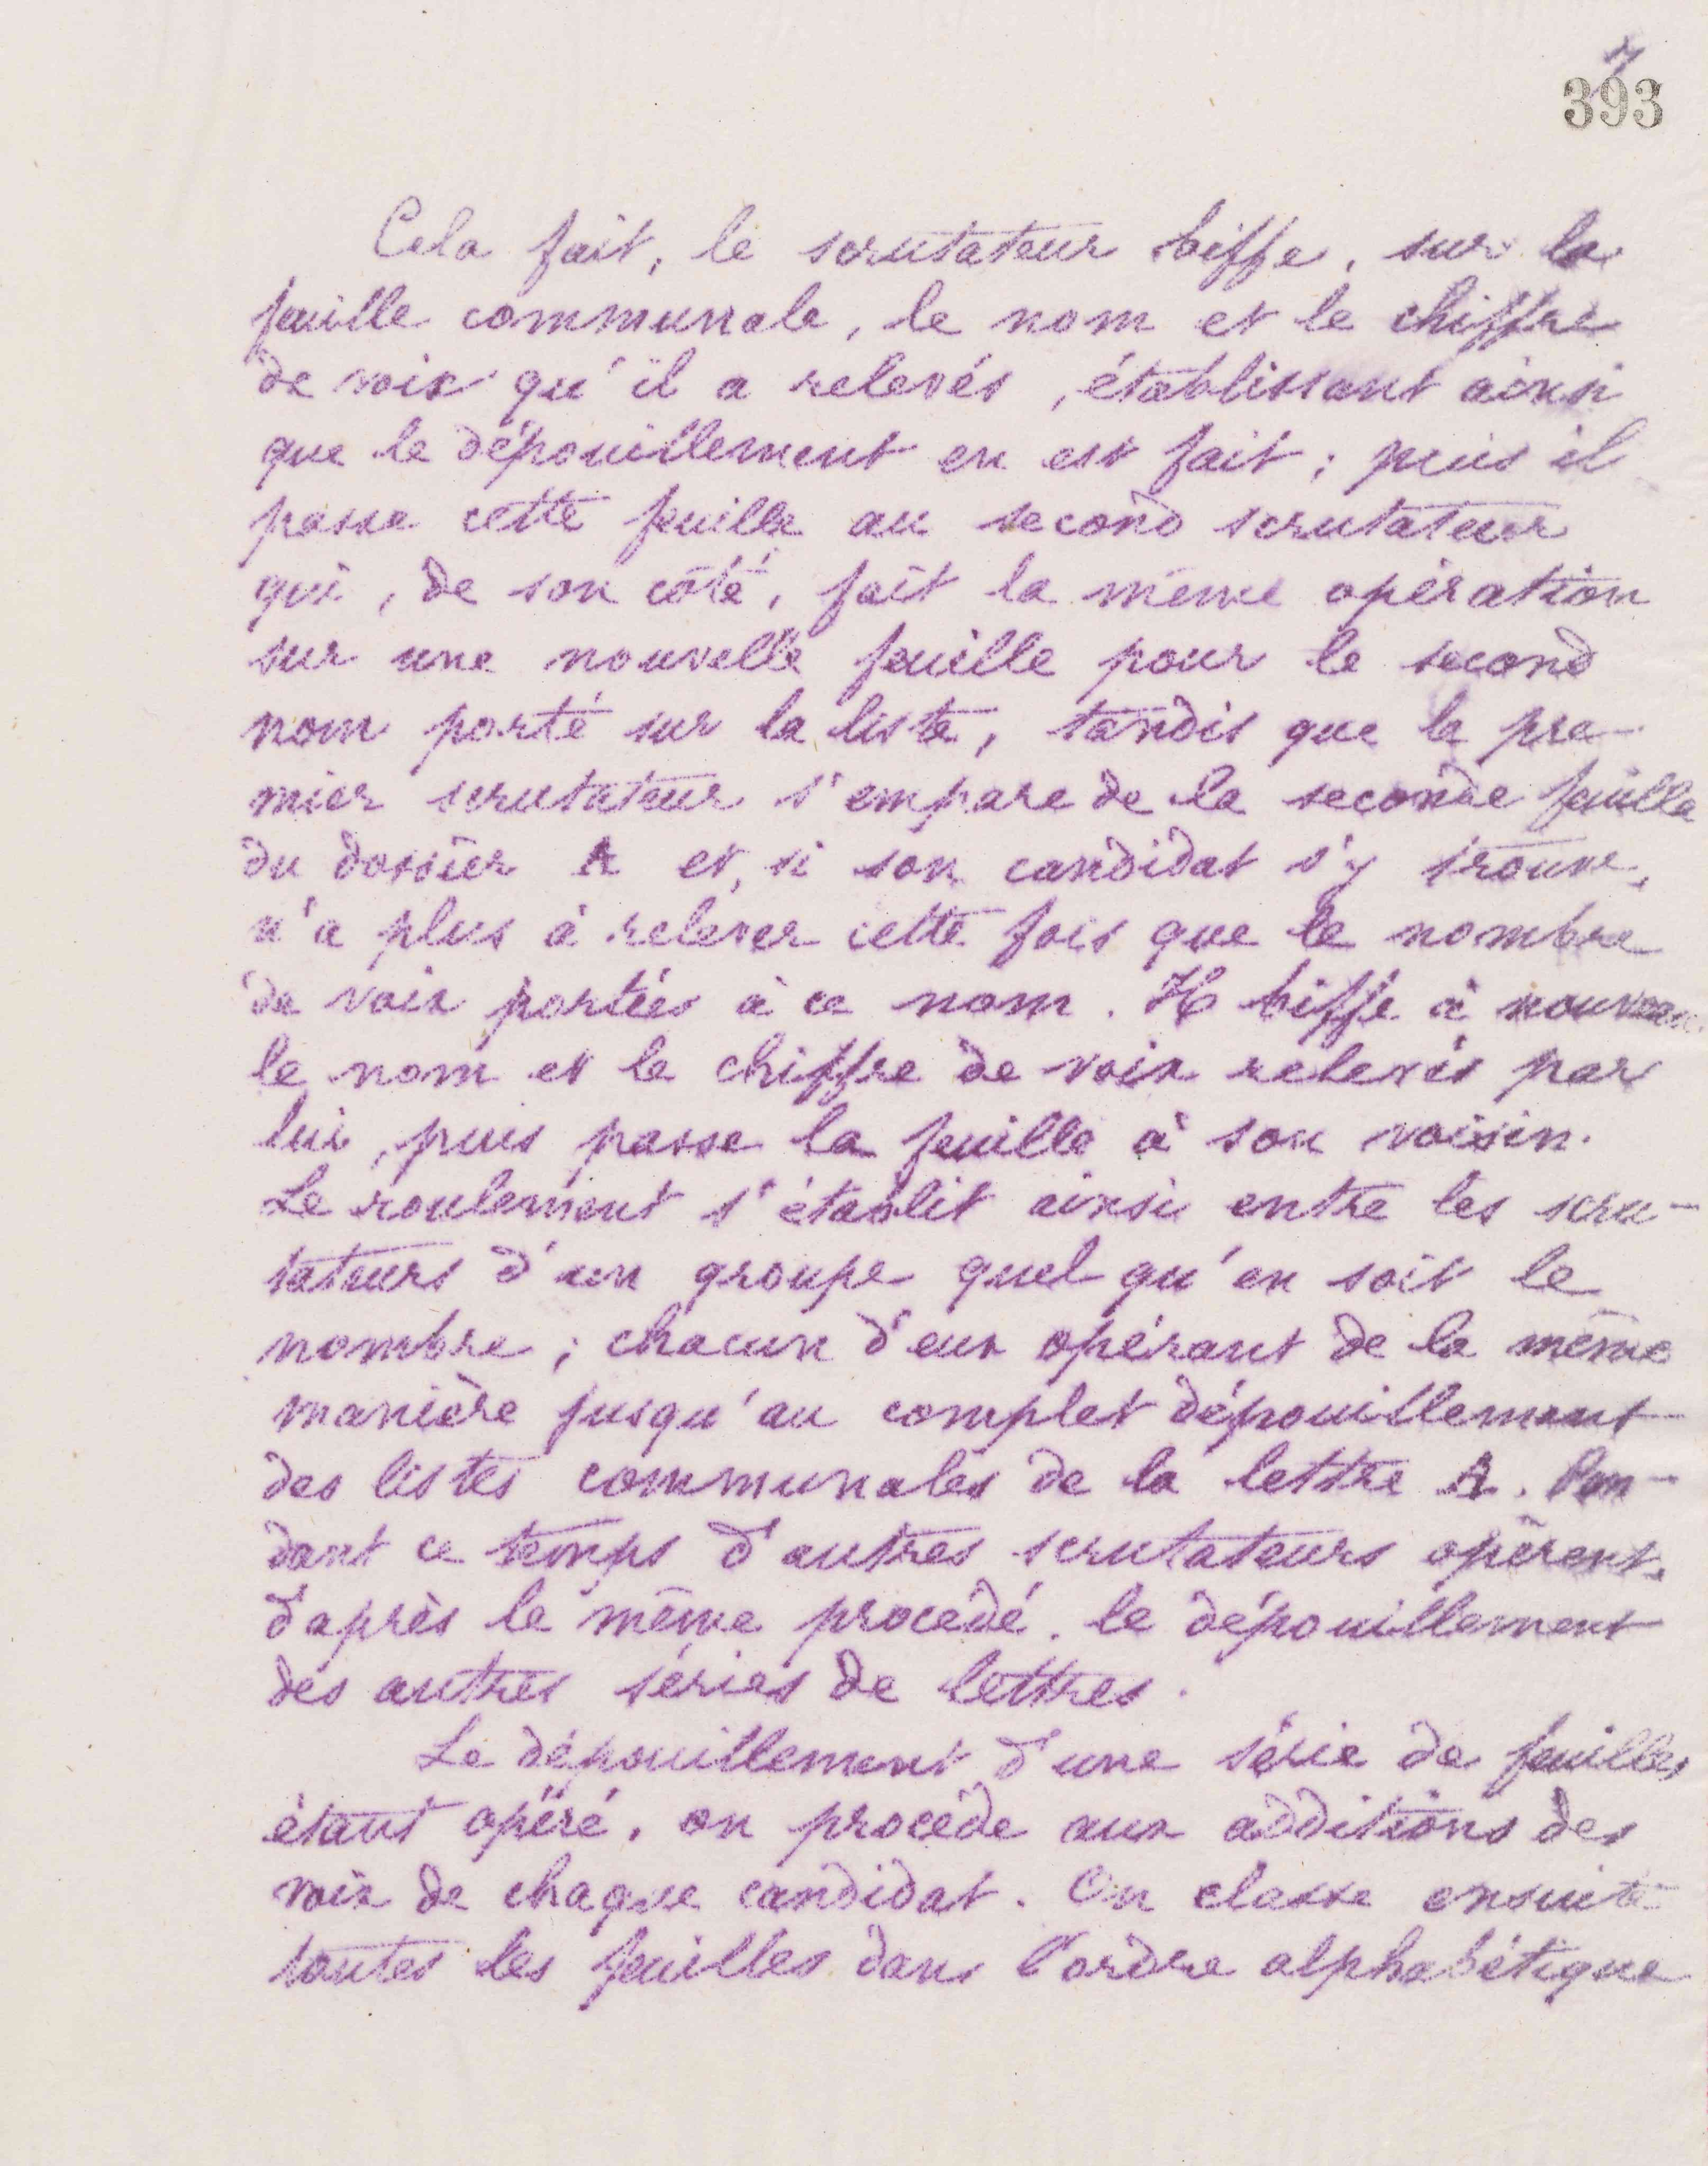 7
393
Cela fait, le scrutateur biffe, sur la
feuille communale, le nom et le chiffre
de voix qu'il a relevés, établissant ainsi
que le dépouillement en est fait ; puis il
passe cette feuille au second scrutateur
qui, de son côté, fait la même opération
sur une nouvelle feuille pour le second
nom porté sur la liste, tandis que le pre-
mier scrutateur s'empare de la seconde feuille
du dossier A et, si son candidat s'y trouve,
n'a plus à relever cette fois que le nombre
de voix portées à ce nom. Il biffe à nouveau
le nom et le chiffre de voix relevés par
lui, puis passe la feuille à son voisin.
Le roulement s'établit ainsi entre les scru-
tateurs d'un groupe quel qu'en soit le
nombre ; chacun d'eux opérant de la même
manière jusqu'au complet dépouillement
des listes communales de la lettre A. Pen-
dant ce temps d'autres scrutateurs opèrent,
d'après le même procédé, le dépouillement
des autres séries de lettres.
Le dépouillement d'une série de feuilles
étant opéré, on procède aux additions des
voix de chaque candidat. On classe ensuite
toutes les feuilles dans l'ordre alphabétique